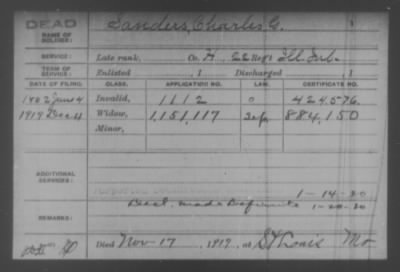 DEAD
NAME OF SOLDIER: Sanders, Charles G.
SERVICE: Late rank, Co. H, 22 Reg't Ill. Inf.
TERM OF SERVICE: Enlisted , 1 Discharged , 1
DATE OF FILING. CLASS. APPLICATION NO. LAW. CERTIFICATE NO.
June 4 Invalid, 1112 0 424,576.
1919 Dec 4 Widow, 1,151,117 884,150
Minor,
ADDITIONAL SERVICES:
1-14-20
made 1-20-20
REMARKS:
Died Nov. 17, 1919, at St Louis Mo